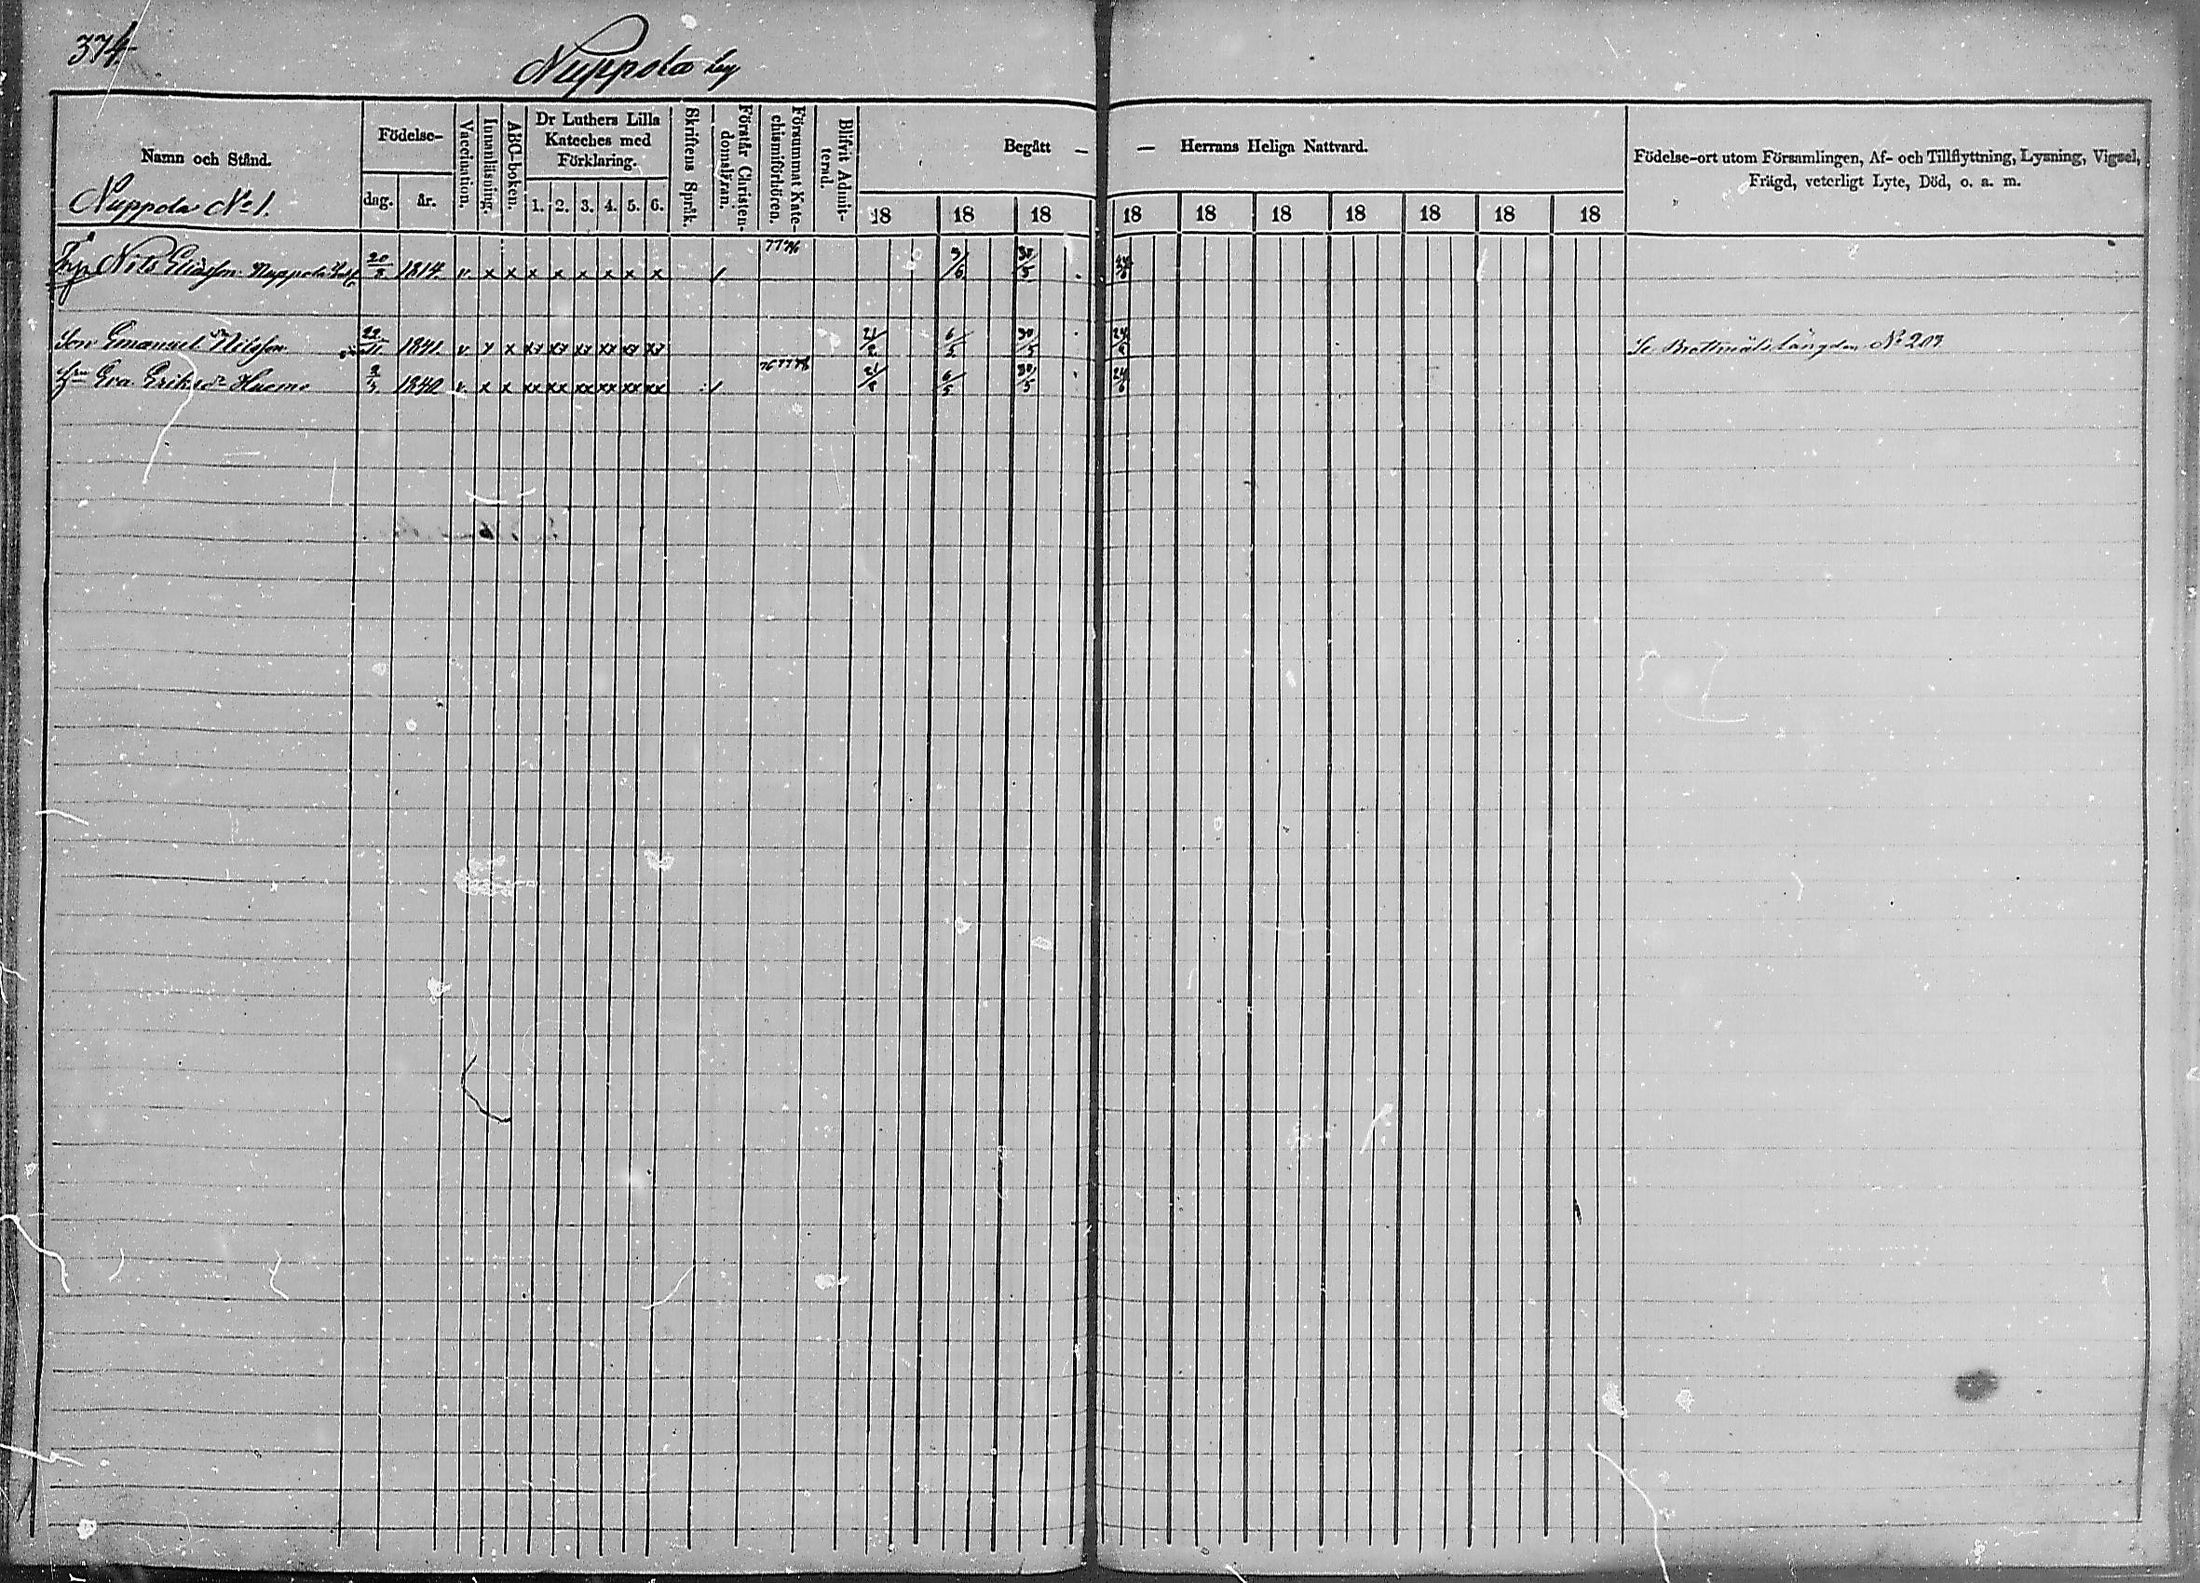 374.
Nuppola by
Namn och Stånd.
Födelse-
dag.
år.
Vaccination.
Innanläsning.
ABC-boken.
Dr Luthers Lilla
Kateches med
Förklaring.
1. 2. 3. 4. 5. 6.
Skriftens Språk.
Förstår Christen-
domsläran.
Försummat Kate-
chismiförhören.
Blifvit Admit-
terad.
Begått —
— Herrans Heliga Nattvard.
18 18 18 18 18 18 18 18 18 18
Födelse-ort utom Församlingen, Af- och Tillflyttning, Lysning, Vigsel,
Frägd, veterligt Lyte, Död, o. a. m.
Nuppola No 1.
Nils Eliasson Nuppola 1814. v x x x x x x x x 77 76
Son Emanuel Nilsson 1841. v x x xx xx xx xx xx xx 21/2 6/5 30/5 Se Brottmåls längden No 203
Eva Eriksdr 1840 v x x xx xx xx xx xx xx 76 77 78 6/5 30/5 24/6